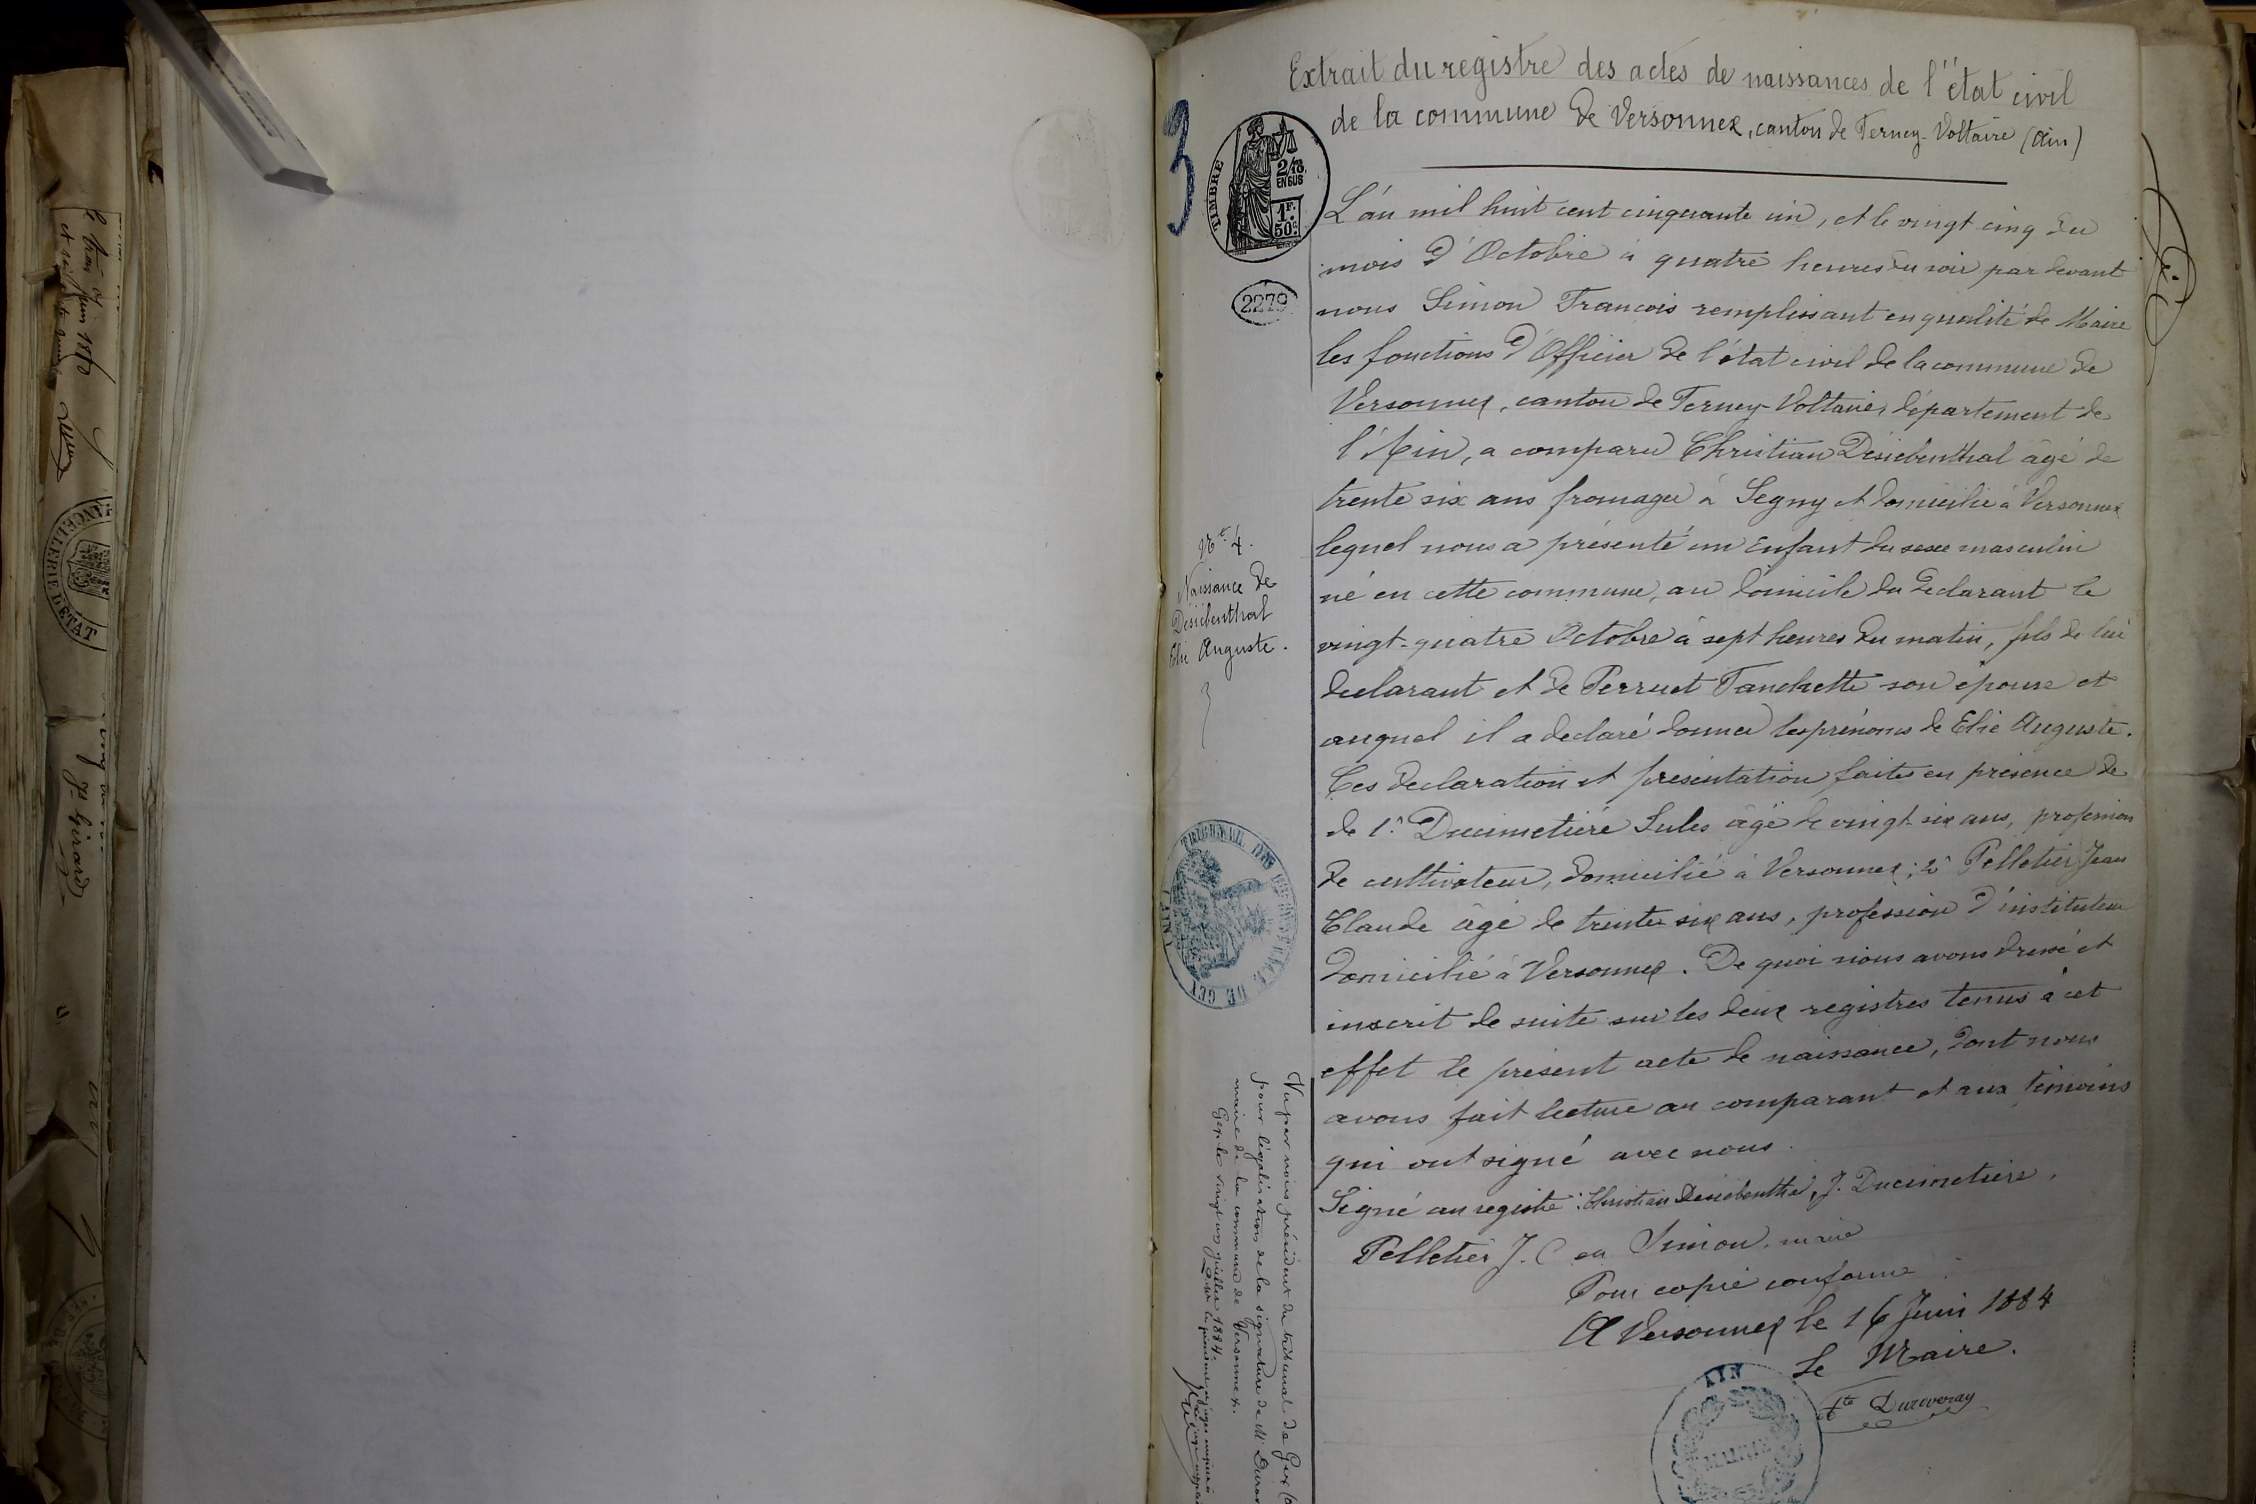 Extrait du registre des actes de naissances de l'état civil
de la commune de Versonnex, canton de Ferney-Voltaire (Ain)
3
TIMBRE
2/10
EN SUS
1F.
50c.
2279
L'an mil huit cent cinquante un, et le vingt cinq du
mois d'Octobre à quatre heures du soir par devant
nous Simon Francois remplissant en qualité de Maire
les fonctions d'Officier de l'état civil de la commune de
Versonnex, canton de Ferney-Voltaire, département de
l'Ain, a comparu Christian Desiebenthal âgé de
trente six ans fromager à Segny et domicilié à Versonnex
lequel nous a présenté un Enfant du sexe masculin
né en cette commune, au domicile du declarant le
vingt-quatre Octobre à sept heures du matin, fils de lui
declarant et de Perruet Fanchette son épouse et
auquel il a declaré donner les prénoms de Elie Auguste.
Ces declaration et présentation faites en présence de
de 1° Ducimetière Jules âgé de vingt-six ans, profession
de cultivateur, domicilié à Versonnex; 2° Pelletier Jean
Claude âgé de trente six ans, profession d'instituteur
domicilié à Versonnex. De quoi nous avons dressé et
inscrit de suite sur les deux registres tenus à cet
effet le présent acte de naissance, dont nous
avons fait lecture au comparant et aux témoins
qui ont signé avec nous.
Signé au registre: Christian Desiebenthal, J. Ducimetière,
Pelletier J. C Simon. maire
Pour copie conforme
A Versonnex le 16 Juin 1884
Le Maire.
Duraveray
AIN
MAIRIE
N° 4.
Naissance de
Desiebenthal
Elie Auguste.
TRIBUNAL DE
DE GEX
(AIN)
Vu par nous président du tribunal de Gex
pour légalisation de la signature de Mr
maire de la commune de Versonnex.
Gex le vingt un juillet 1884.
juin 18
CHANCELLERIE D'ETAT
Girard